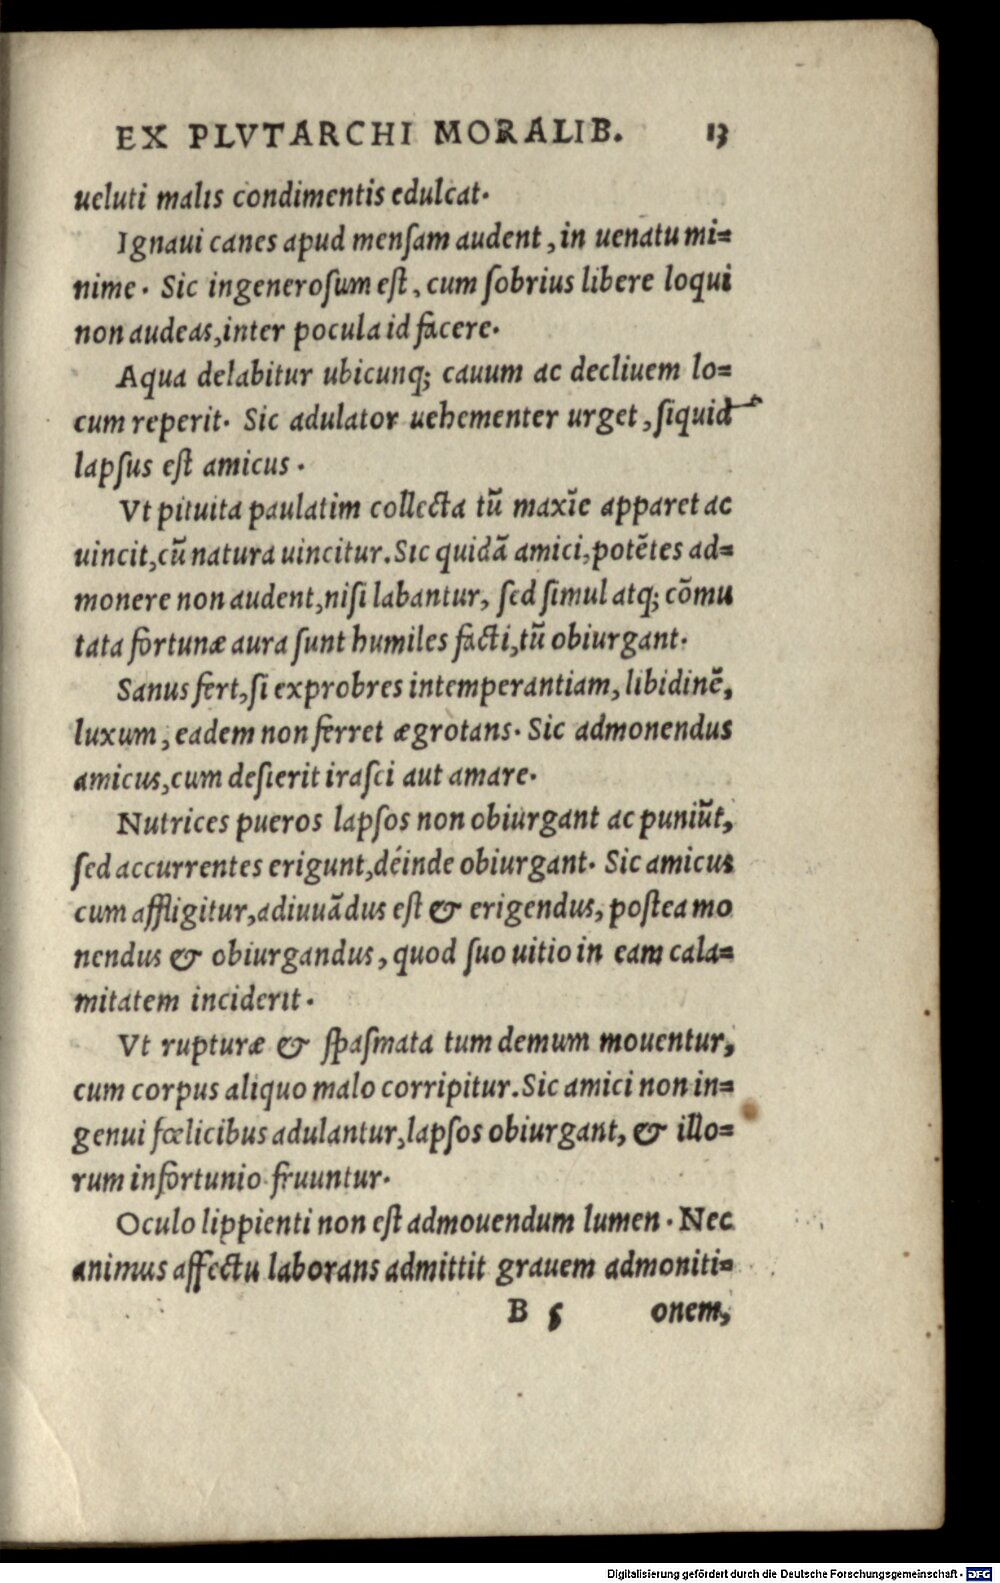 EX PLVTARCHI MORALIB. 13
ueluti malis condimentis edulcat.
Ignaui canes apud menſam audent, in uenatu mi=
nime. Sic ingeneroſum eſt, cum ſobrius libere loqui
non audeas, inter pocula id facere.
Aqua delabitur ubicunq; cauum ac decliuem lo=
cum reperit. Sic adulator uehementer urget, ſiquid
lapſus eſt amicus.
Vt pituita paulatim collecta tũ maxĩe apparet ac
uincit, cũ natura uincitur. Sic quidã amici, potẽtes ad=
monere non audent, niſi labantur, ſed ſimul atq; cõmu
tata fortunæ aura ſunt humiles facti, tũ obiurgant.
Sanus fert, ſi exprobres intemperantiam, libidinẽ,
luxum, eadem non ferret ægrotans. Sic admonendus
amicus, cum deſierit iraſci aut amare.
Nutrices pueros lapſos non obiurgant ac puniũt,
ſed accurrentes erigunt, déinde obiurgant. Sic amicus
cum affligitur, adiuuãdus eſt & erigendus, poſtea mo
nendus & obiurgandus, quod ſuo uitio in eam cala=
mitatem inciderit.
Vt rupturæ & ſpaſmata tum demum mouentur,
cum corpus aliquo malo corripitur. Sic amici non in=
genui fœlicibus adulantur, lapſos obiurgant, & illo=
rum infortunio fruuntur.
Oculo lippienti non eſt admouendum lumen. Nec
animus affectu laborans admittit grauem admoniti=
B 5 onem,
Digitalisierung gefördert durch die Deutsche Forschungsgemeinschaft - DFG